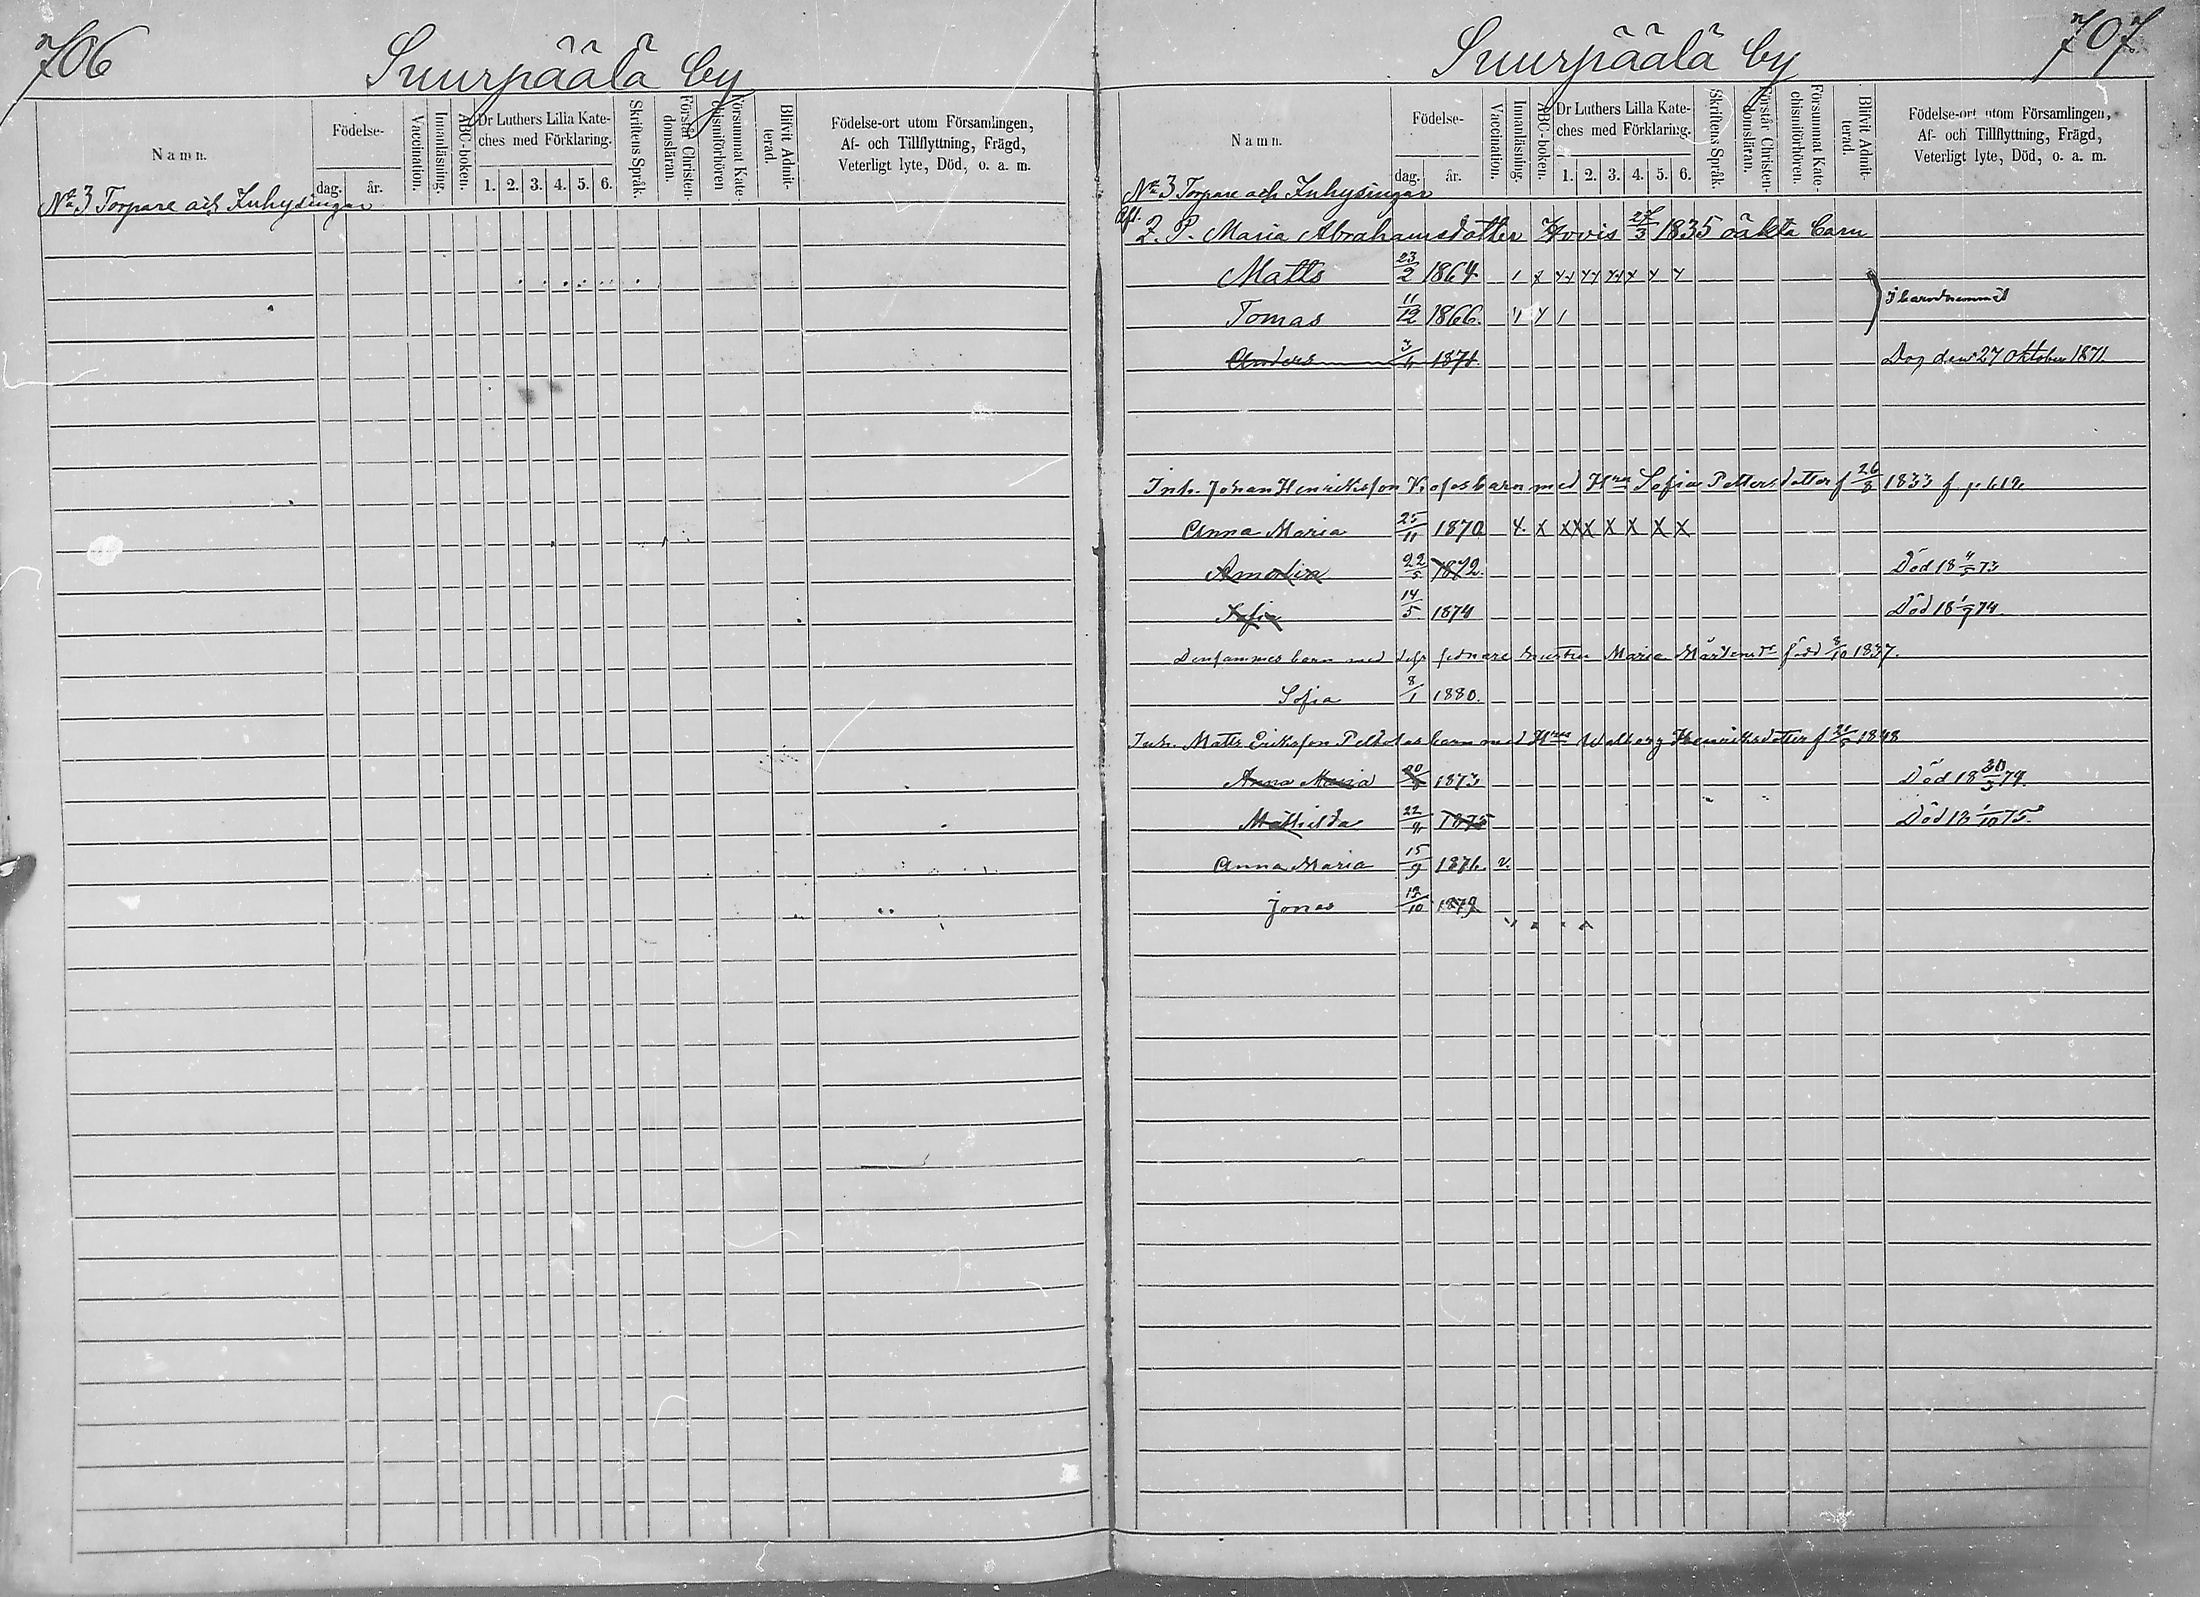 706
Suurpäälä by
Namn.
Födelse-
dag. år.
Vaccination.
Innanläsning.
ABC-boken.
Dr Luthers Lilla Kate-
ches med Förklaring.
1. 2. 3. 4. 5. 6.
Skriftens Språk.
Förstår Christen-
domsläran.
Försummat Kate-
chismiförhören
Blifvit Admit-
terad.
Födelse-ort utom Församlingen,
Af- och Tillflyttning, Frägd,
Veterligt lyte, Död, o. a. m.
No 3 Torpare och Inhysingar
Suurpäälä by
707
Namn.
Födelse-
dag. år.
Vaccination.
Innanläsning.
ABC-boken.
Dr Luthers Lilla Kate-
ches med Förklaring.
1. 2. 3. 4. 5. 6.
Skriftens Språk.
Förstår Christen-
domsläran.
Försummat Kate-
chismiförhören.
Blifvit Admit-
terad.
Födelse-ort utom Församlingen,
Af- och Tillflyttning, Frägd,
Veterligt lyte, Död, o. a. m.
No 3 Torpare och Inhysingar
Maria Abrahamsdotter Hovis 1835 oäkta barn
Matts 23/2 1864
Tomas 11/12 1866.
Anders 1871 Dog den 27 Oktober 1871
Inh. Johan Henriksson barn med Hru Sofia Pettersdotter f 26/8 1833
Anna Maria 25/11 1870
Amalia 22/5 1872. Död 18 73
Sofia 14/5 1874 Död 18 74.
Densammes barn med sednare hustru Maria född 8/10 1837.
Sofia 8/1 1880.
Inh. Matts Eriksson barn med Hru Walborg Henriksdotter f 1848
Anna Maria 1873 Död 18 30/3 74.
Mathilda 1875 Död 18 1/10 75.
Anna Maria 15/9 1876. v.
Jonas 1879